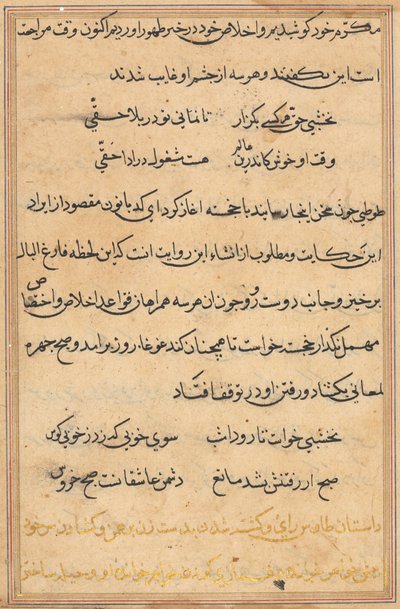 مکرم خود کوشیدیم و اخلاص خود در حیز ظهور اوردیم اکنون وقت مراجعت
است این بگفتند و هر سه از چشم او غایب شدند
نخشبی حق هر کسی بگزار تا نمانی تو در بلا حقّی
وقت او خوش که اندرین عالم هست مشغول در ادا حقّی
طوطی چون سخن اینجا رسانید با خجسته اغاز کرد ای کدبانو مقصود از ایراد
این حکایت و مطلوب از انشاء این روایت انست که این لحظه فارغ البال
برخیز و جانب دوست رو و چون ان هر سه همراهان قواعد اخلاص و اختصاص
مهمل نگذار خجسته خواست تا همچنان کند غوغا روز برامد و صبح چهره
لمعانی بکشاد و رفتن او در توقف افتاد
نخشبی خواست تا رود امشب سوی خوبی که زد ز خوبی کوس
صبح از رفتنش بشد مانع دشمن عاشقانست صبح خروس
داستان طاوس رای و کشته شدن بدست زن برهمن و کشادن